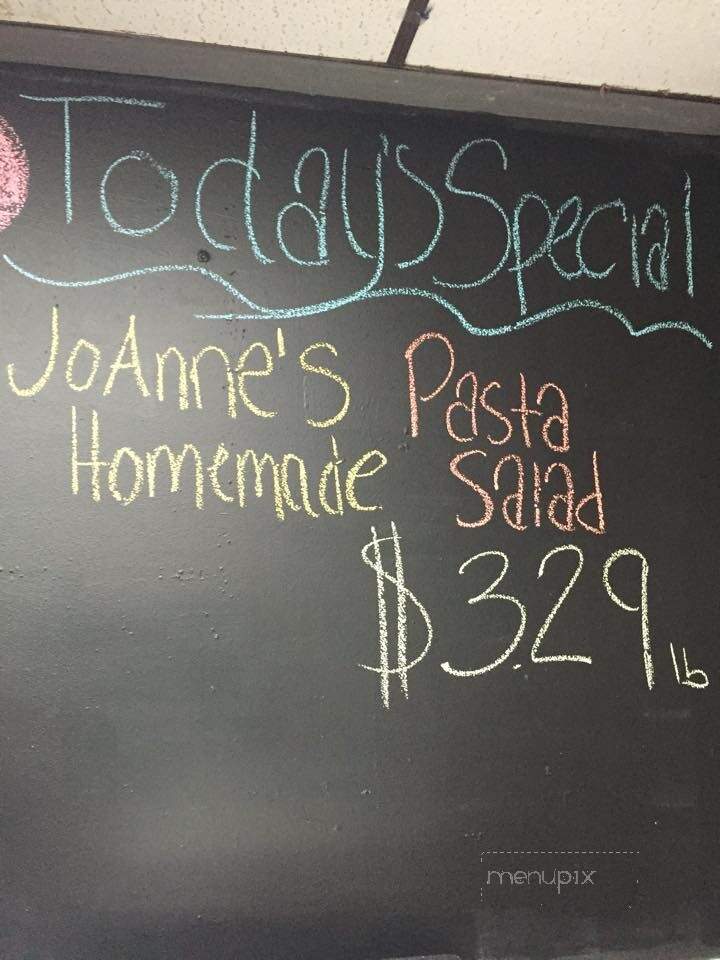 Today's Special
JoAnne's Pasta
Homemade Salad
$3.29 lb
menupix